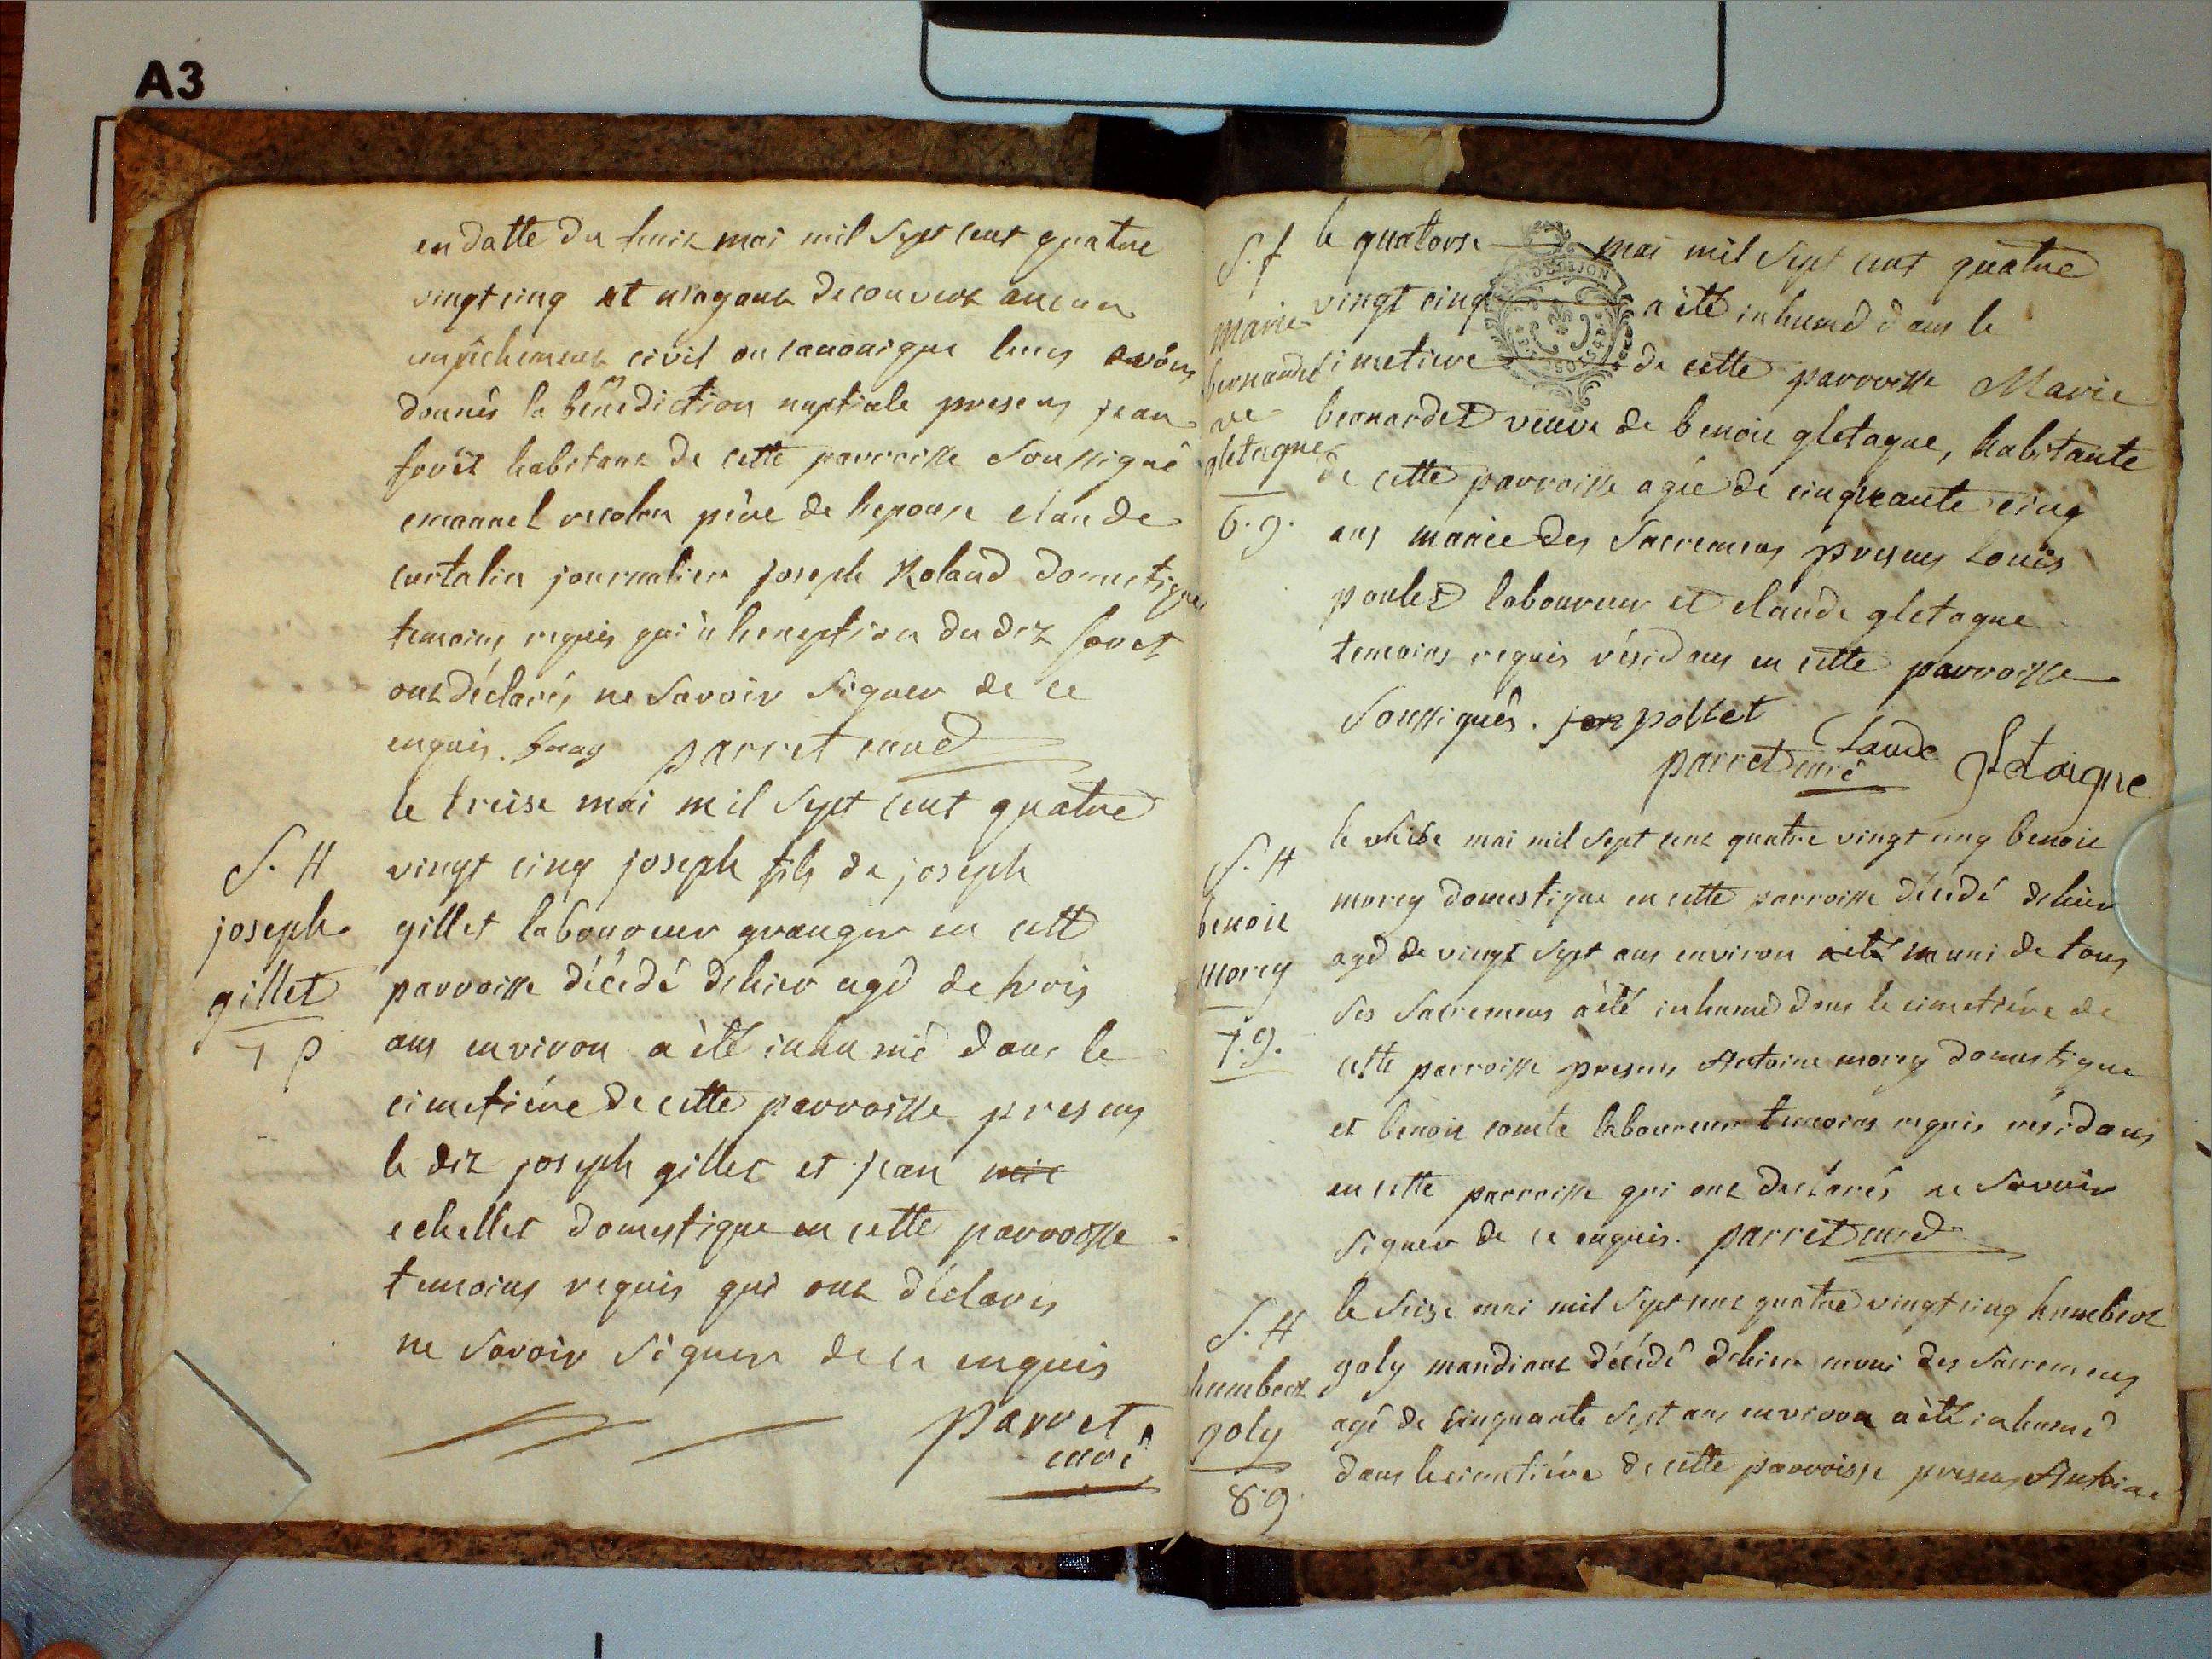 A3
en datte du huit mai mil sept cent quatre
vingt cinq et n'ayant decouvert aucun
empêchement civil ou canonique leurs avons
donnés la bénédiction nuptiale presens jean
forêt habitant de cette parroisse soussigné
emanuel père de l'epouse claude
curtalin journalier joseph Roland domestique
temoins requis qui a l'exeption du dit foret
ont déclarés ne savoir signer de ce
enquis. parret curé
le treise mai mil sept cent quatre
S. H
joseph
gillet
7 p
vingt cinq joseph fils de joseph
gillet laboureur granger en cette
parroisse décédé dehier agé de trois
ans environ a été inhumé dans le
cimetiére de cette parroisse presens
le dit joseph gillet et jean
echellet domestique en cette parroisse
temoins requis qui ont déclarés
ne savoir signer de ce enquis
parret
curé
S. f
marie
bernardet
ve
gletagne
6. 9.
le quatorse mai mil sept cent quatre
vingt cinq a été inhumé dans le
cimetiere de cette parroisse Marie
bernardet veuve de benoit gletagne, habitante
de cette parroisse agée de cinquante cinq
ans munie des sacremens presens Louis
poulet laboureur et claude gletagne
temoins requis résidans en cette parroisse
soussignés. pollet
Claude Gletaigne
parret curé
S. H
benoit
morey
7. 9.
le mai mil sept cent quatre vingt cinq benoit
morey domestique en cette parroisse décédé dehier
agé de vingt sept ans environ muni de tous
ses sacremens a été inhumé dans le cimetiére de
cette parroisse presens Antoine morey domestique
et benoit comte laboureur temoins requis résidans
en cette parroisse qui ont declarés ne savoir
signer de ce enquis. parret curé
S. H
humbert
goly
8. 9
le seise mai mil sept cent quatre vingt cinq humbert
goly mandiant décédé dehier muni des sacremens
agé de cinquante sept ans environ a été inhumé
dans le cimetiére de cette parroisse presens Antoine